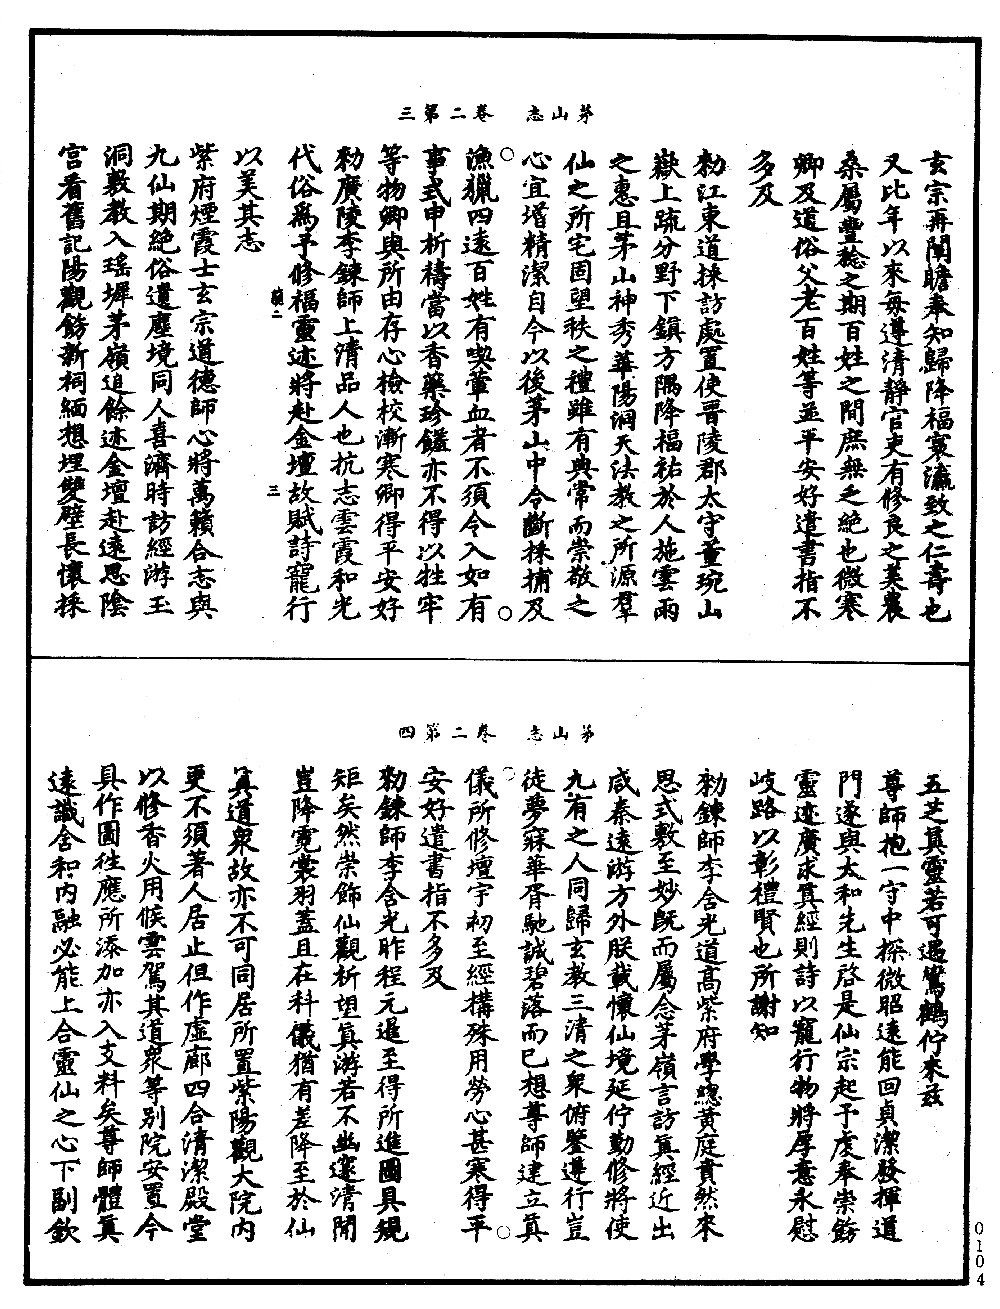 茅山志　卷二第三
玄宗再闡瞻奉知歸降福寰瀛致之仁壽也
又比年以來每遵清靜官吏有修良之美農
桑屬豐稔之期百姓之間庶無乏絶也微寒
卿及道俗父老百姓等並平安好遣書指不
多及
勑江東道採訪處置使晉陵郡太守董琬山
嶽上疏分野下鎮方隅降福祐於人施雲雨
之惠且茅山神秀華陽洞天法教之所源羣
仙之所宅固望秩之禮雖有典常而崇敬之
心宜增精潔自今以後茅山中令斷採捕及
漁獵四遠百姓有喫葷血者不須令入如有
事式申祈禱當以香藥珍羞亦不得以牲牢
等物卿與所由存心檢校漸寒卿得平安好
勑廣陵李鍊師上清品人也抗志雲霞和光
代俗爲予修福靈迹將赴金壇故賦詩寵行
三
以美其志
紫府煙霞士玄宗道德師心將萬籟合志與
九仙期絶俗遺塵境同人喜濟時訪經游玉
洞敷教入瑤墀茅嶺追餘迹金壇赴遠思陰
宫看舊記陽觀飭新祠緬想埋雙壁長懷採
茅山志　卷二第四
五芝眞靈若可遇鸞鶴佇來兹
尊師抱一守中探微昭遠能回貞潔發揮道
門遂與太和先生啓是仙宗起予虔奉崇飭
靈迹廣求眞經則詩以寵行物將厚意永慰
岐路以彰禮賢也所謝知
勑鍊師李含光道高紫府學總黄庭賁然來
思式敷至妙旣而屬念茅嶺言訪眞經近出
咸秦遠游方外朕載懷仙境延佇勤修將使
九有之人同歸玄教三清之衆俯鑒遵行豈
徒夢寐華胥馳誠碧落而已想尊師建立眞
儀所修壇宇初至經構殊用勞心甚寒得平
安好遣書指不多及
勑鍊師李含光昨程元暹至得所進圖具規
矩矣然崇飾仙觀祈望眞游若不幽邃清閒
豈降霓裳羽蓋且在科儀猶有差降至於仙
眞道衆故亦不可同居所置紫陽觀大院内
更不須著人居止但作虛廊四合清潔殿堂
以修香火用候雲駕其道衆等别院安置今
具作圖往應所添加亦入支料矣尊師體眞
遠識含和内融必能上合靈仙之心下副欽
0104